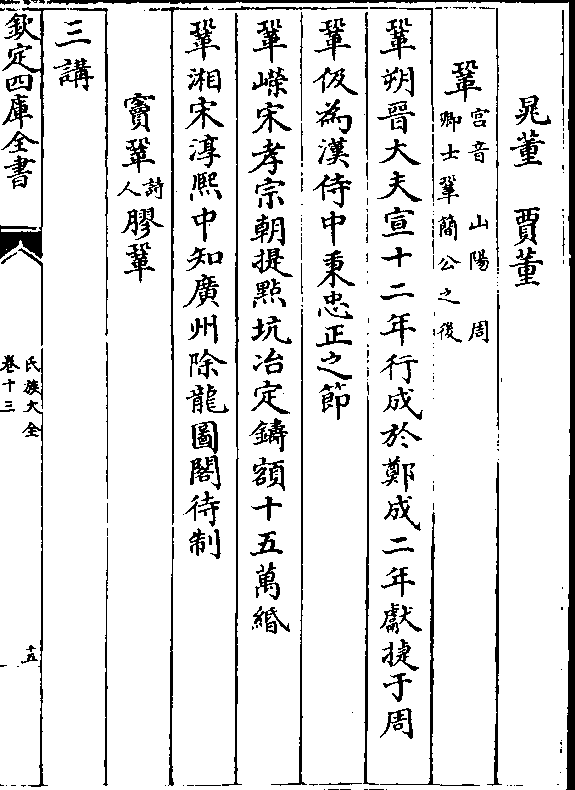 晁董　賈董
鞏宫音　山陽　周卿士鞏簡公之後
鞏朔晉大夫宣十二年行成於鄭成二年獻捷于周
鞏伋為漢侍中秉忠正之節
鞏嶸宋孝宗朝提點坑冶定鑄額十五萬緡
鞏湘宋淳熙中知廣州除龍圖閣待制
竇鞏詩人膠鞏
三講
欽定四庫全書
氏族大全
卷十三
十五